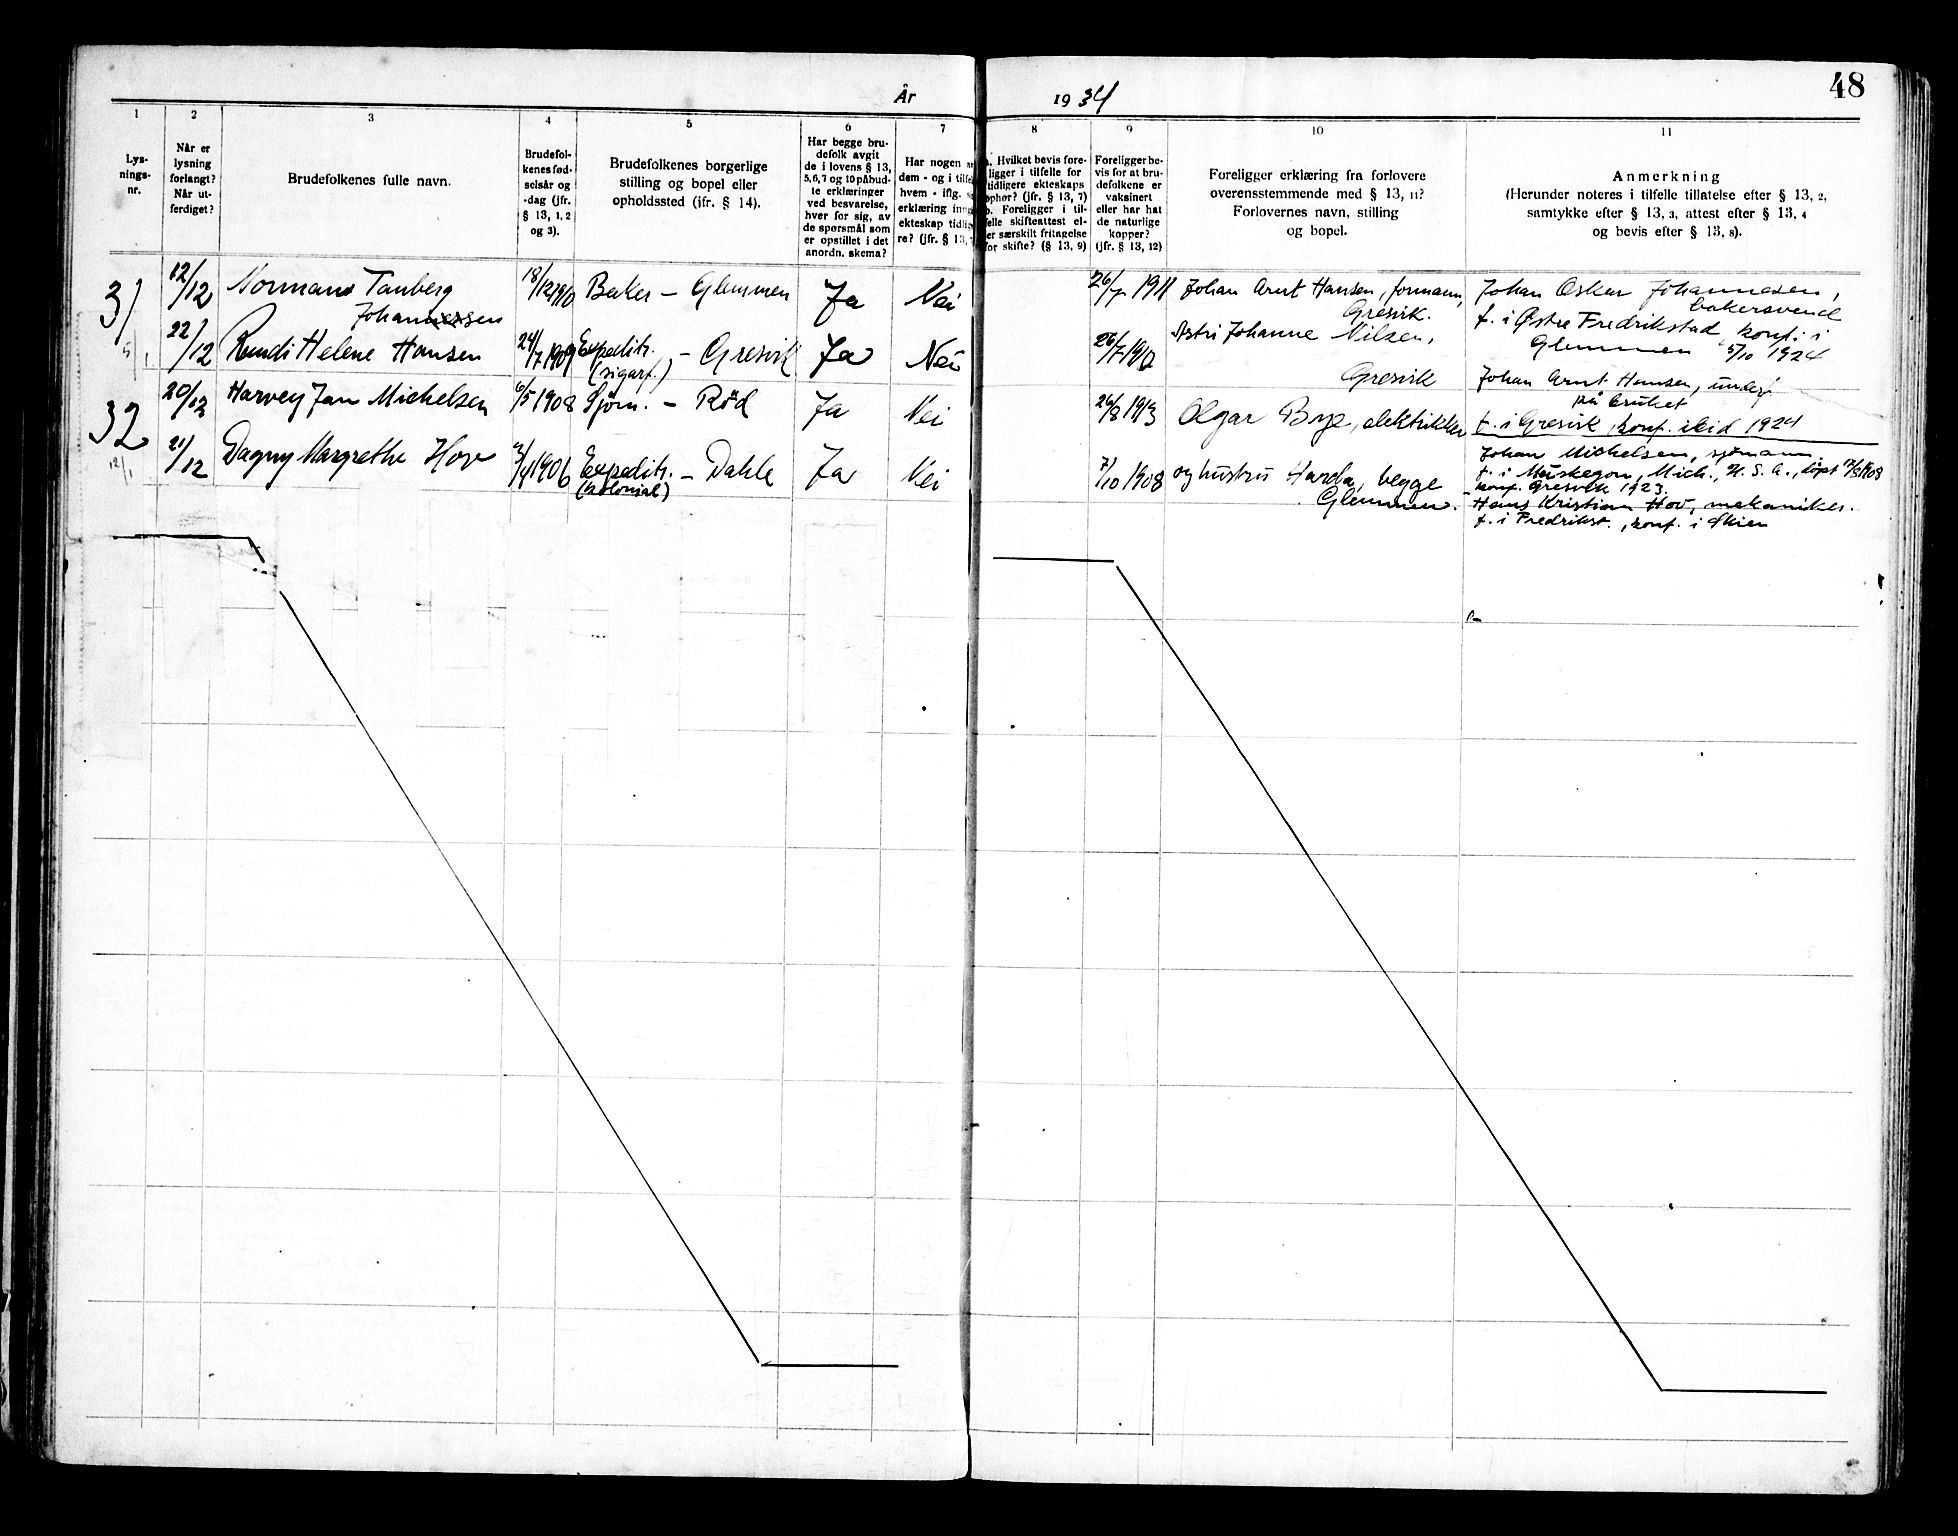 48
År 1934
1 2 3 4 5 6 7 8 9 10 11
Lys-
nings-
nr.
Når er
lysning
forlangt?
Når ut-
ferdiget?
Brudefolkenes fulle navn.
Brudefol-
kenes fød-
selsår og
-dag (jfr.
§ 13, 1, 2
og 3).
Brudefolkenes borgerlige
stilling og bopel eller
opholdssted (ifr. § 14).
Har begge bru-
defolk avgit
de i lovens § 13,
5,6,7 og 10 påbud-
te erklæringer
ved besvarelse,
hver for sig, av
de spørsmål som
er opstillet i det
anordn. skema?
Har nogen av
dem - og i tilfe
hvem - iflg.
erklæring inng
ekteskap tidlig
re? (jfr. § 13,
a. Hvilket bevis fore-
ligger i tilfelle for
tidligere ekteskaps
ophør? (jfr. § 13, 7)
b. Foreligger i til-
felle skifteattest el-
er særskilt fritagelse
for skifte? (§ 13, 9)
Foreligger be-
vis for at bru-
defolkene er
vaksinert
eller har hat
de naturlige
kopper?
(jfr. § 13, 12)
Foreligger erklæring fra forlovere
overensstemmende med § 13, 11?
Forlovernes navn, stilling
og bopel.
Anmerkning
(Herunder noteres i tilfelle tillatelse efter § 13, 2,
samtykke efter § 13, 3, attest efter § 13, 4
og bevis efter § 13, 8).
31
12/12 Norman Tanberg
Johannessen
18/12 1910 Baker - Glemmen Ja Nei
26/7 1911 Johan Arnt Hansen, formann,
Gresvik.
Johan Oskar Johannesen,
bakersvend
f. i Østre Fredrikstad konf. i
Glemmen 5/10 1924
22/12 Rundi Helene Hansen 24/7 1909 Expeditr.
(sigarf.) - Gresvik Ja Nei
26/7 1912 Astri Johanne Nilsen,
Gresvik
Johan Arnt Hansen,
på bruket
f. i Gresvik, konf. ibid 1924
32
20/12 Harvey Jan Michelsen 6/5 1908 Sjøm. - Rød Ja Nei
26/8 1913 Olgar Bye, elektrikker
Johan Michelsen, sjømann.
f. i Muskegon, Mich., U. S. A., døpt
konf. Gresvik 1923.
12/1
21/12 Dagny Margrethe Hov 1906 Expeditr.
(kolonial) - Dahle Ja Nei
7/10 1908 og hustru Harda, begge
Glemmen.
Hans Kristian Hov, mekaniker.
f. i Fredrikst., konf. i Skien